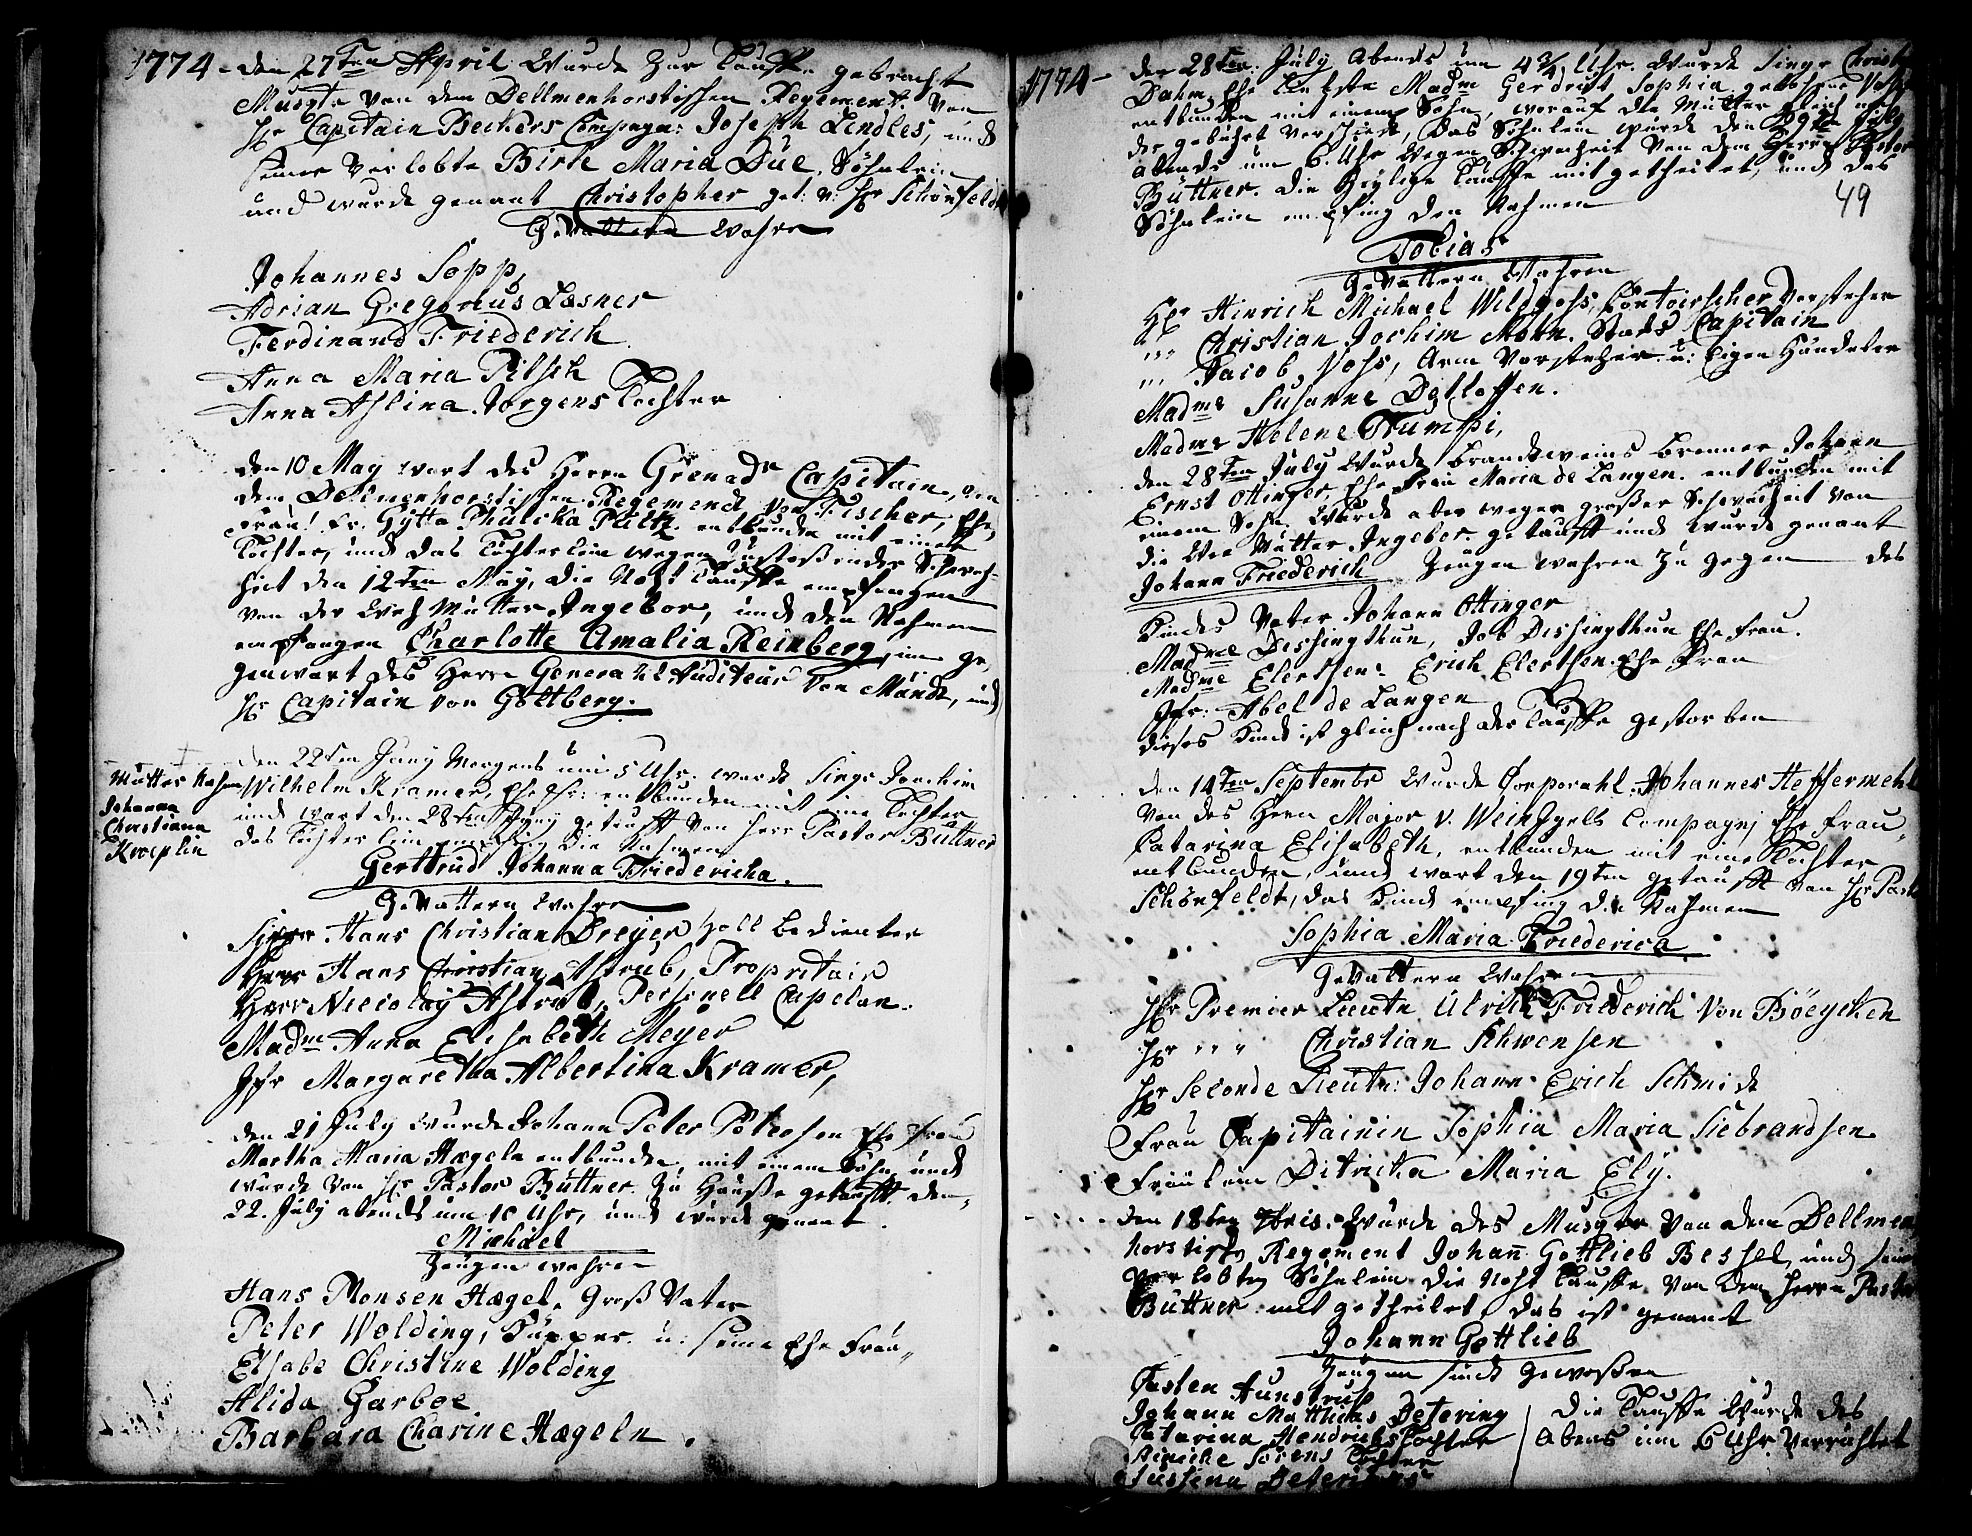 1774 - den 27ten April Wurde zur Tauffe gebracht
Musqt. von dem Dellmenhorstischen Regement. Von
Hr Capitain Beckers Compagn: Joseph Lendles, und
seiner Verlobte Birte Maria Düe, Söhnlein
und wurde genant Christopher get: v: Hr Schönfeldt
Gevattern Wahren
Johannes Sopp,
Adrian Gregorius Læsner
Ferdinand Friederich
Anna Maria Pitsch
Anna Aslina Jorgens Tochter
den 10 May wart des Herrn Grenadr Capitain, von
dem Dellmenhorstischen Regemend von Fischer, Ehe,
Frau! Fr. Gytta Phulcka Pültz entbunden mit einer
Tochter, und das Töchterlein wegen Schwach-
heit den 12ten May, die Noht Tauffe empfangen
von der Weh Mutter Ingebor, und den Nahmen
empfangen Charlotte Amalia Reinberg, im ge,
genwart des Herrn Generall Auditeur von Mandt, und
Hr Capitain von Göttberg.
den 22ten Juny Morgens um 5 Uhr. wurde Singr Jochim
Mutter Nahme
Johanna
Christiana
Kroeplin
Wilhelm Kramer, Ehe Fr: entbunden mit eine Tochter
und wart den 28ten Juny getauft von Herr Pastor Büttner
das Töchterlein empfing die Nahmen
Gerttrud Johanna Friedericha.
Gevattern Wahren
Singr Hans Christian Dreyer Zoll bedienter
Herr Hans Christian Astrub, Propritair
Herr Niecolay Astrub, Personell Capelan.
Madm Anna Elisabeth Meyer
Jfr Margaretha Albertina Kramer,
den 21 July wurde Johann Peter Petersen Ehe Frau
Martha Maria Hægeln entbunden, mit einem Sohn, und
wurde von Hr Pastor Büttner zu Hause getaufft den,
22. July abends um 10 Uhr, und wurde genant
Michael
Zeugen wahren
Hans Monsen Hægel, Groß Vater
Peter Wolding, Küpper u: seine Ehe Frau,
Elsabe Christine Wolding
Alida Garboe
Barbara Charine Hægeln.
1774 - den 28ten July Abends um 4 3/4 Uhr. Wurde Singr Christ
Dahm Ehe Liebste Madm Gerdrut Sophia gebohrne
entbunden mit einem Sohn, worauf die Mutter gleich nach
der gebuhrt verschied, das Söhnlein wurde den 29ten July
abends um 6. Uhr wegen Schwachheit von dem Herrn Pastor
Büttner. die Heylige Tauffe mitgetheilet, und das
Söhnlein empfing den Nahmen
49
Tobias
Gevattern Wahren
Hr Hinrich Michael Wildgohs, Contoirscher Vorsteher
,,, Christian Jochim Mohn. Stads Capitain
,,, Jacob Vohs, Arm Vorsteher u: Eigen Händeler
Madme Susanne Detloffen.
Madme Helene Trumpi,
den 28ten July Wurde brandtweins brenner Johann
Ernst Ottinger, Ehe Frau Maria de Langen. entbunden mit
einem Sohn. Wurde aber wegen großer Schwachheit von
die Wee Mutter Ingebor getaufft und wurde genant
Johann Friederich Zeugen wahren zu gegen des
Kindes Vater Johann Ottinger
Madme Dessingthun, Job Dissingthun Ehe Frau.
Madme Elertsen. Erich Elertsen. Ehe Frau
Jfr: Abel de Langen
dieses Kind ist gleich nach der Tauffe gestorben
den 14ten Septembr Wurde Corporahl. Johannes Heffermehl
von des Herrn Major v. Weinygels Compagni Ehe Frau,
Catarina Elisabeth, entbunden mit eine Tochter
entbunden, und wart den 19ten getaufft von Hr Past
Schönfeldt, das Kind empfing die Nahmen
Sophia Maria Friederica
Gevattern Wahren
Hr Premier Lieutn Ulrich Friederich von Böeycken
Hr ,, ,, Christian Schwensen
Hr Seconde Lieutn: Johann Erich Schmidt
Frau Capitainin Sophia Maria Siebrandsen
Fräulein Ditricka Maria Ely.
den 18ten 7bris. Wurde des Musqtr von dem Dellmen
horstisch Regement Johañ Gottlieb Bessel, und seine
Verlobten Söhnlein die Noht Tauffe von dem Herrn Pastor
Büttner mitgetheilet, das ist genant
Johann Gottlieb
Zeugen sindt geweßen
Casten Aunstrup
Johann Matthias Detering
Catarina Hendrichs Tochter
Sörens Tochter
Justina Deterings
Die Tauffe Wurde des
Abens um 6 Uhr Verrichtet